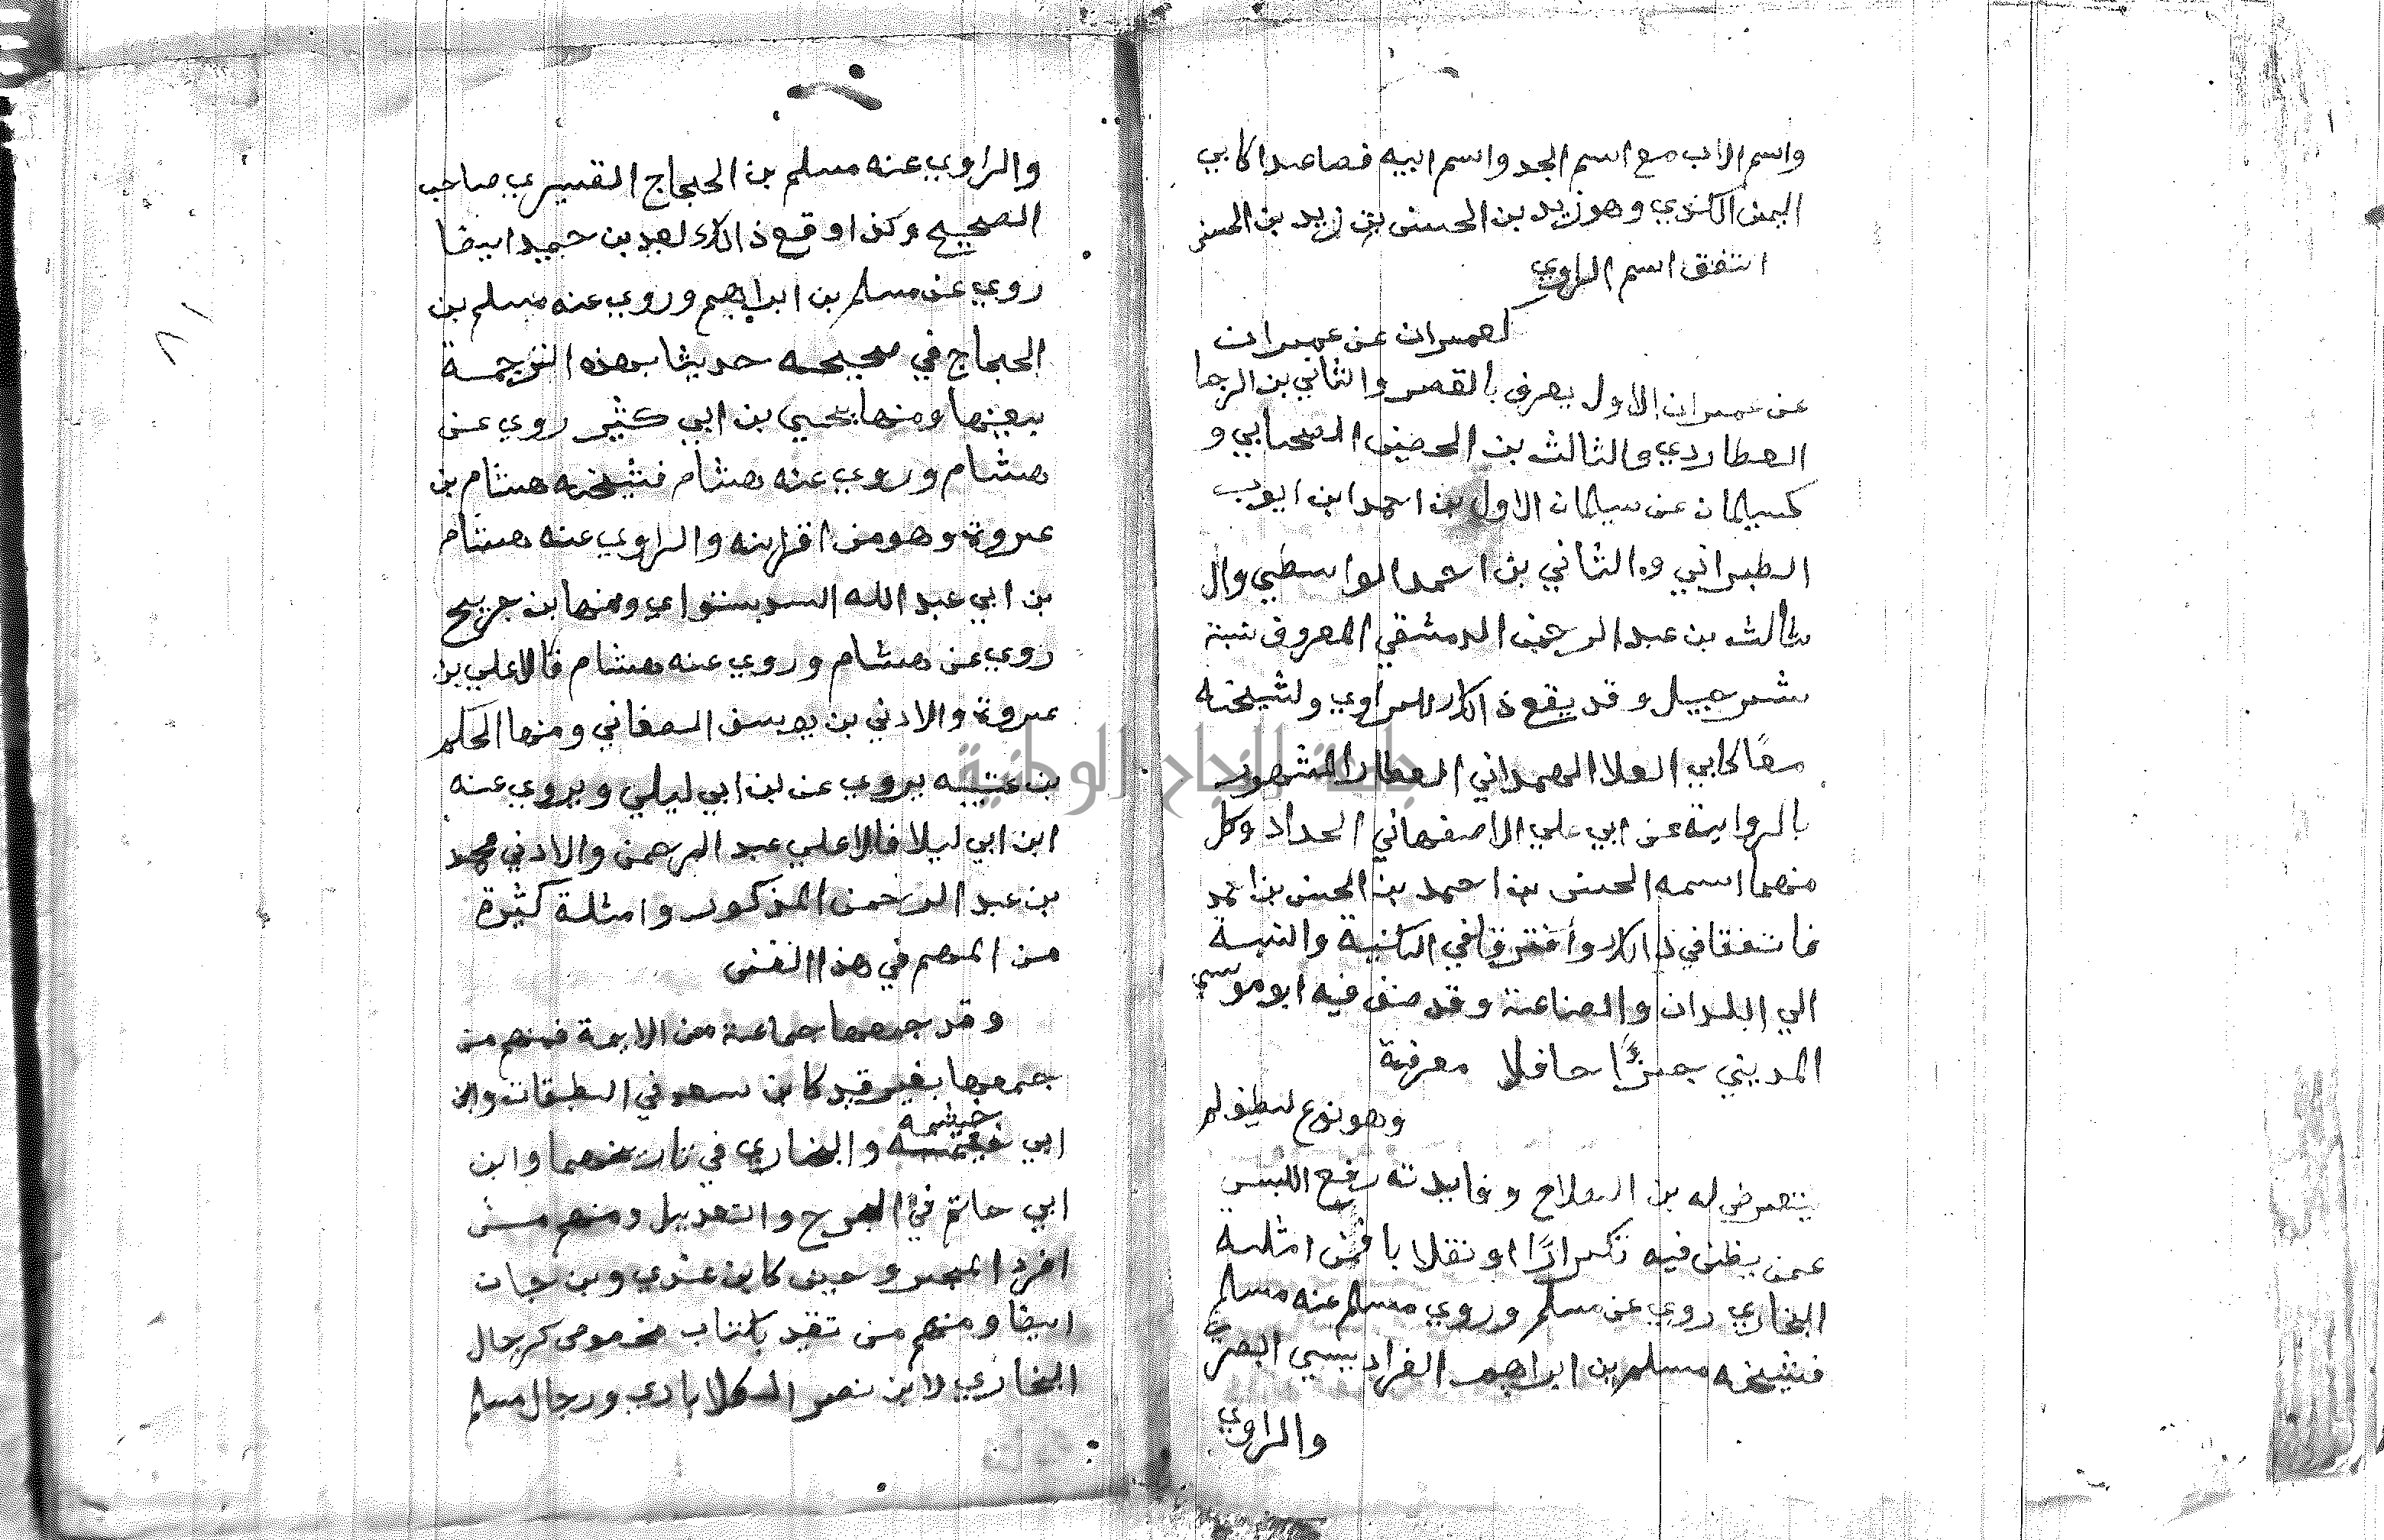 واسم الاب مع اسم الجد واسم ابيه فصاعدا كابي
اليمن الكندي وهو زيد بن الحسن بن زيد بن الحسن
اتفق اسم الراوي
كعمران عن عمران
عن عمران الاول يعرف بالقصر والثاني بن الرجا
العطاردي والثالث بن الحصين الصحابي و
كسيلمان عن سيلمان الاول بن احمد ابن ايوب
الطبراني والثاني بن احمد الواسطي وال
ثالث بن عبد الرحمن الدمشقي المعروف
شرحبيل وقد يقع ذالك للراوي ولشيخه
معًا كابي العلا الهمداني العطار المشهور
بالرواية عن ابي علي الاصفهاني الحداد وكل
منهما اسمه الحسن بن احمد بن الحسن بن احمد
فاتفقا في ذالك وأفترقا في الكنية والنسبة
الي البلدان والصناعة وقد صنف فيه ابو موسي
المديني جزءًا حافلا معرفة
وهو نوع لطيف لم
يتعرض له بن الصلاح وفايدته رفع اللبس
عمن يظن فيه تكرارًا او نقلا با فمن امثلته
البخاري روي عن مسلم وروي مسلم عنه مسلم
فشيخه مسلم بن ابراهيم الفراديسي البصري
والراوي
والراوي عنه مسلم بن الحجاج القسيري صاحب
الصحيح وكذا وقع ذالك لعبد بن حميد ايضا
روي عن مسلم بن ابراهيم وروي عنه مسلم بن
الحجاج في صحيحه حديثا بهذه الترجمة
بعينها ومنها يحيي بن ابي كثير روي عن
هشام وروي عنه هشام فشيخه هشام بن
عروة وهو من اقرانه والراوي عنه هشام
بن ابي عبد الله الدستواي ومنها بن جريج
روي عن هشام وروي عنه هشام فالاعلي بن
عروة والادني بن يوسف الصغاني ومنها الحكم
بن عتيبه يروي عن بن ابي ليلي ويروي عنه
ابن ابي ليلا فالاعلي عبد الرحمن والادني محمد
بن عبد الرحمن المذكور وامثلة كثيرة
من المهم في هذا الفن
وقد جمعها جماعة من الايمة فمنهم من
جمعها بغير قيد كابن سعد في الطبقات وابن
خيثمه
ابي والبخاري في تاريخهما وابن
ابي حاتم في الجرح والتعديل ومنهم من
افرد المجروحين كابن عدي وبن حبان
ايضا ومنهم من تقيد بكتاب مخصوص كرجال
البخاري لابن نصر الكلابادي ورجال مسلم
جامعة النجاح الوطنية